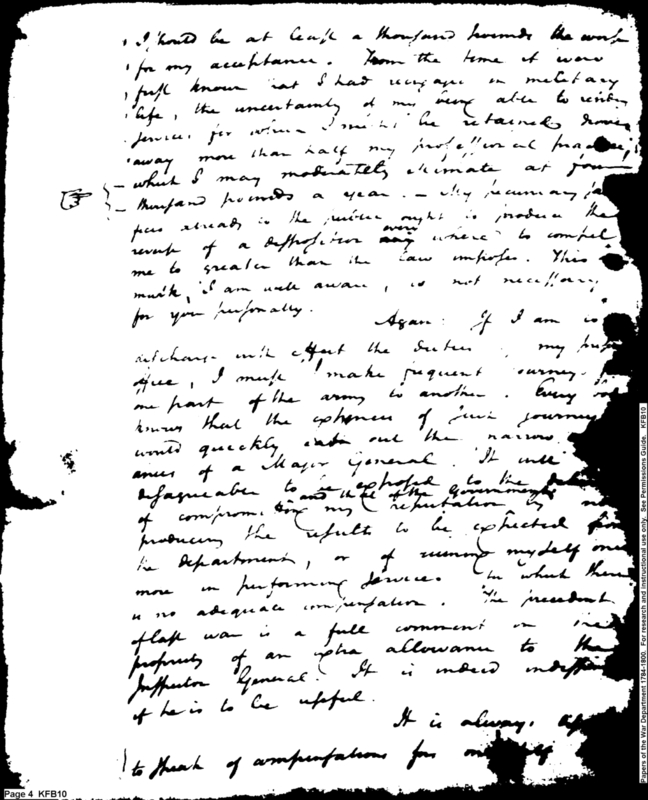 I should be at least a thousand pounds the worse
for my acceptance. From the time it were
first known that I had reengaged in military
life, the uncertainty of my being able to render
services for which I might be retained drove
away more than half my professional practice,
which I may moderately estimate at four
thousand pounds a year. — My pecuniary
already to the public ought to produce the
reverse of a disposition every where to compel
me to greater than the law imposes. This
mark, I am well aware, is not necessary
for you personally.
Again: If I am to
discharge with effect the duties my
office, I must make frequent journeys
one part of the army to another. Every
knows that the expences of such journeys
would quickly eat out the narrow
ances of a Major General. It will
disagreeable to be exposed to the
of compromitting my reputation and that of the Government by not
producing the results to be expected from
the department, or of ruining myself once
more in performing service to which there
is no adequate compensation. The precedent
of last war is a full comment on the
propriety of an extra allowance to the
Inspector General. It is indeed
if he is to be useful.
It is always
to speak of compensations for one self
Page 4 KFB10
Papers of the War Department 1784-1800. For research and instructional use only. See Permissions Guide. KFB10